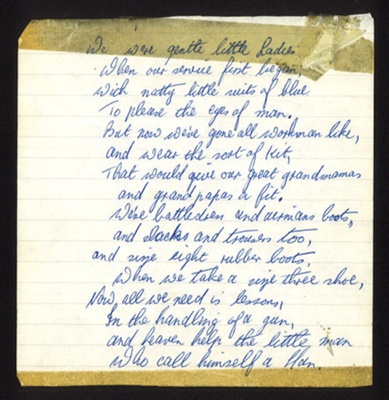 We were gentle little Ladies
When our service first began,
With natty little suits of blue
To please the eyes of man.
But now we've gone all workman like,
and wear the sort of kit,
That would give our great grandmamas
and grandpapas a fit.
We've battledress and airmans boots,
and slacks and trousers too,
and size eight rubber boots,
When we take a size three shoe,
Now all we need is lessons,
In the handling of a gun,
and heaven help the little man
Who call himself a Hun.